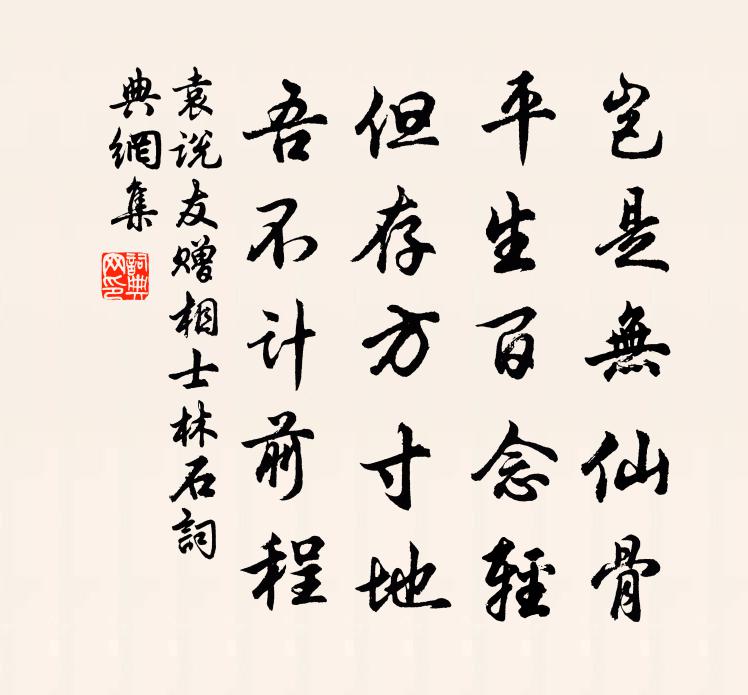 岂是無仙骨
平生百念輕
但存方寸地
吾不计前程
袁说友赠相士林石詞
典網集
詞典
网印